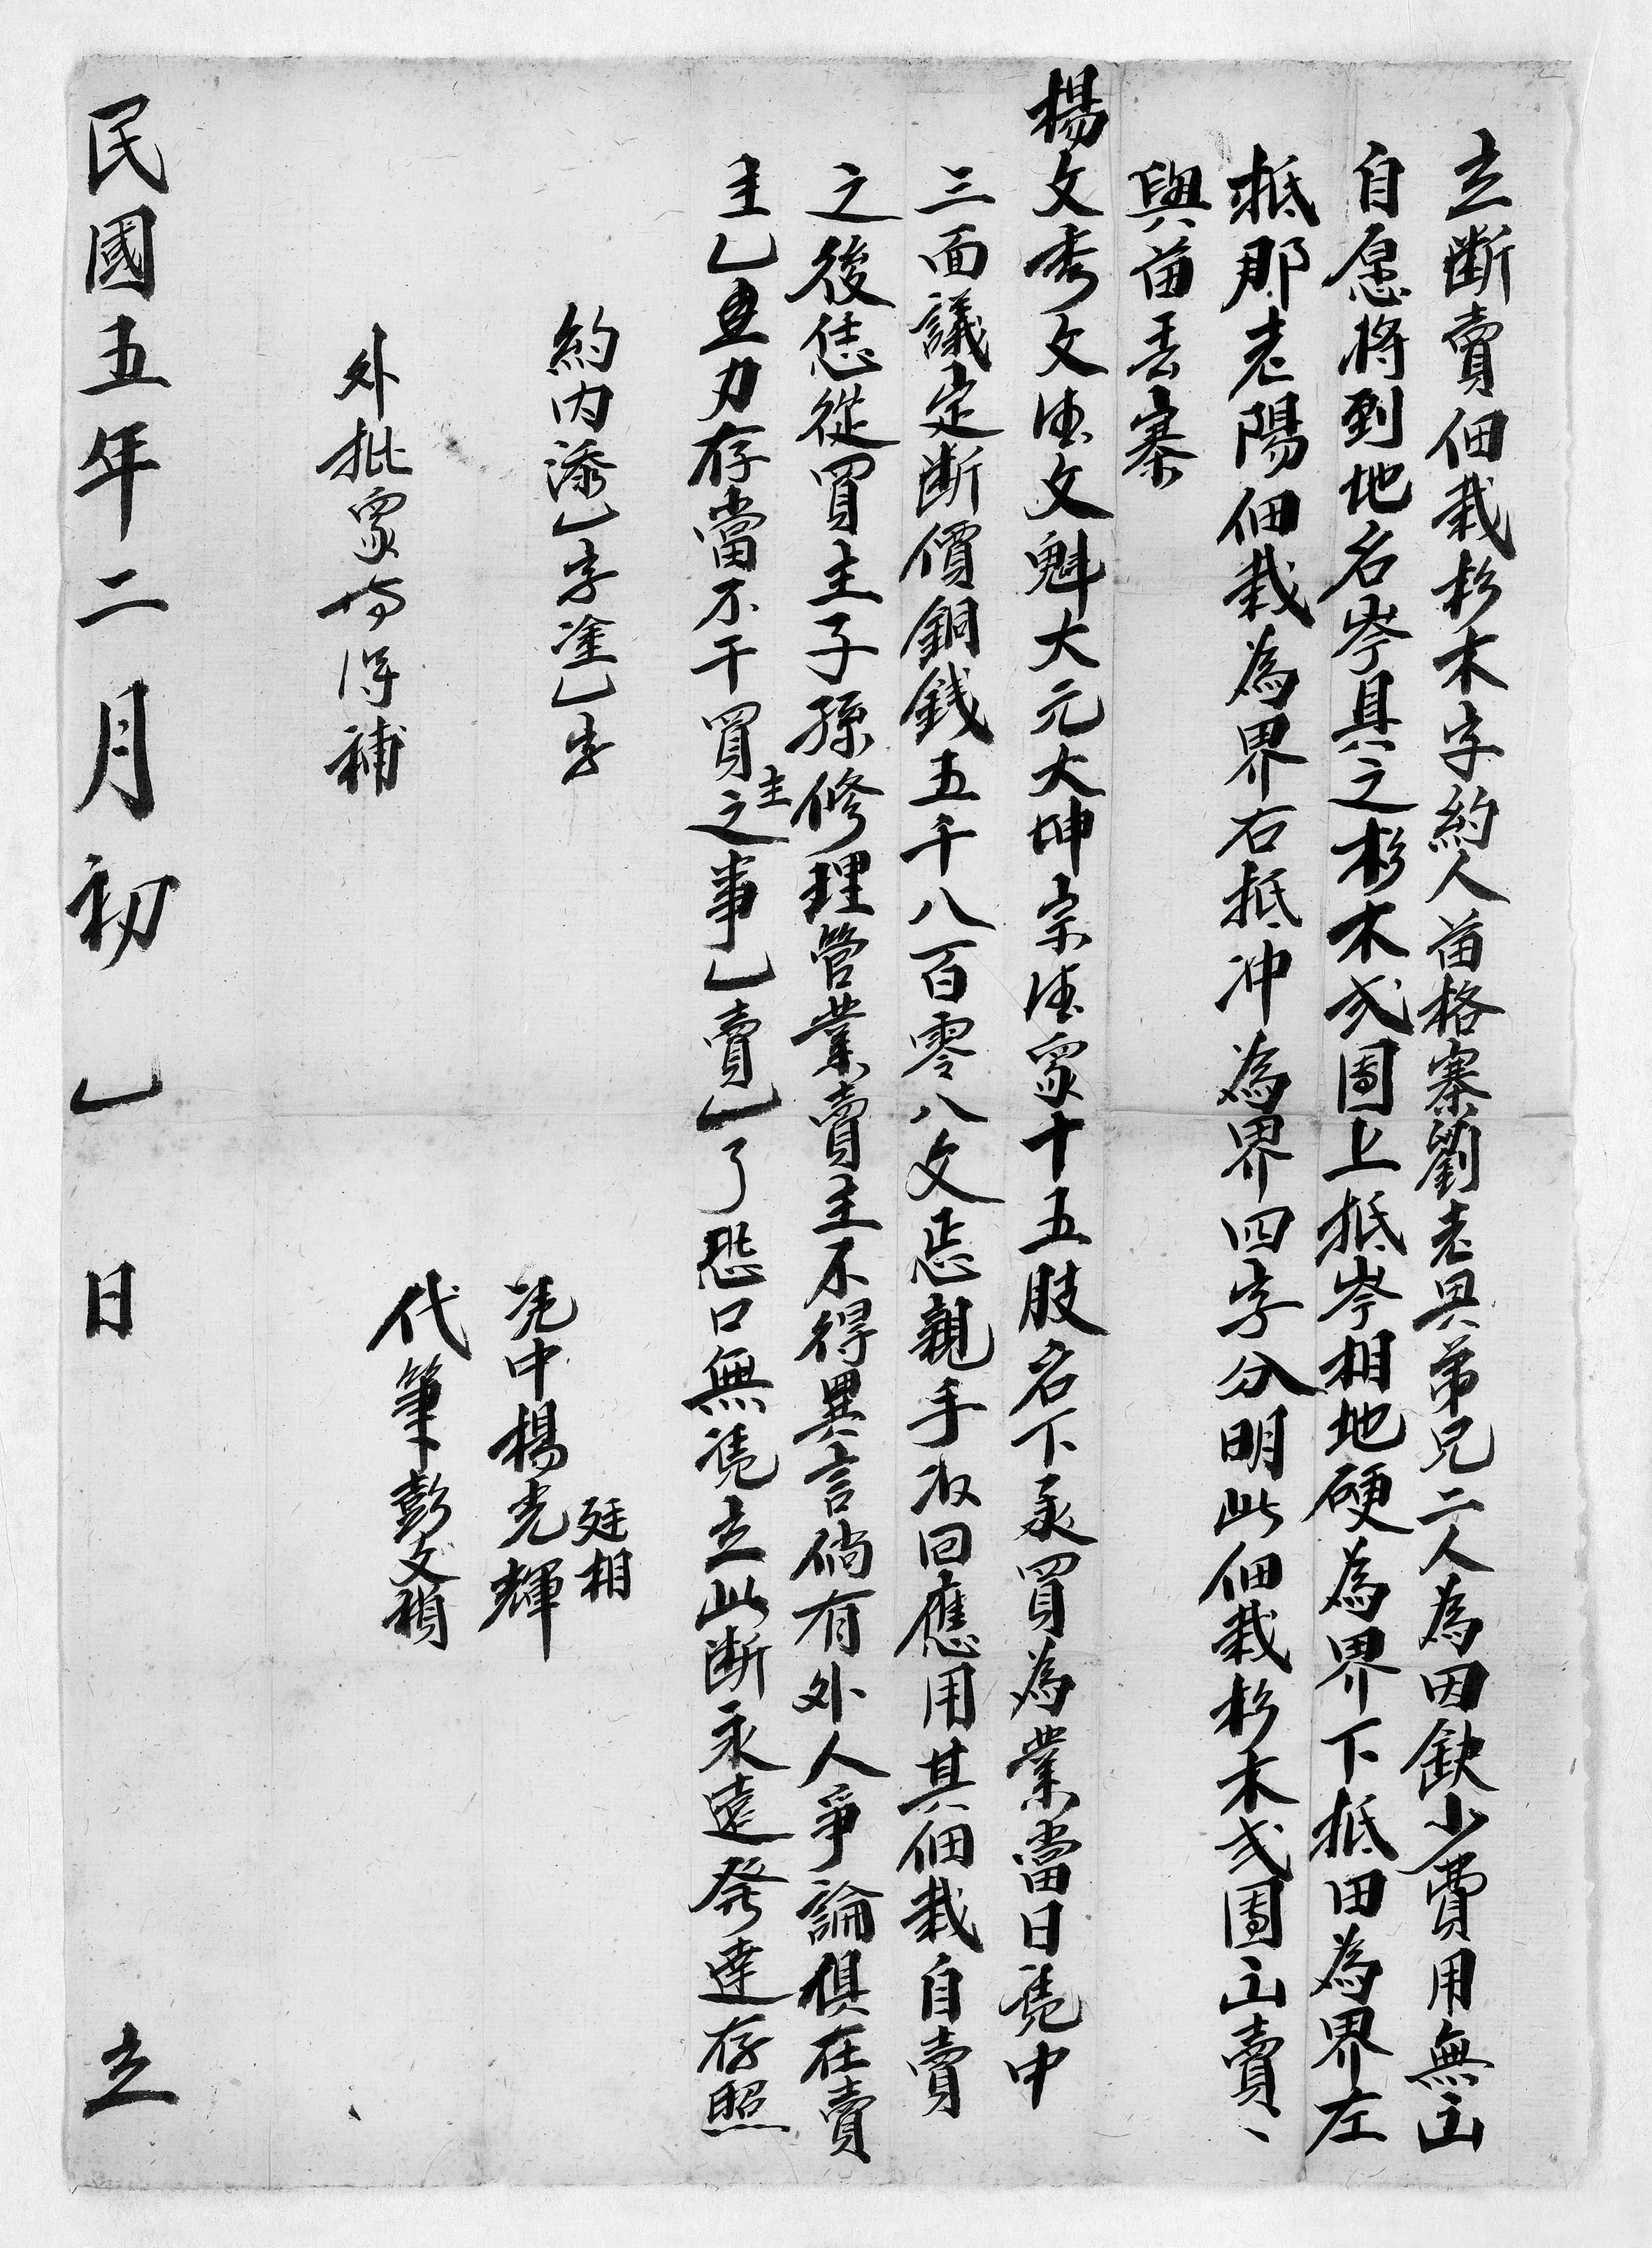 立断賣佃栽杉木字約人苗格寨劉老具弟兄二人為因缺少費用無出
自愿将到地名岑具之杉木弍團上抵岑相地硬為界下抵田為界左
抵那老陽佃栽為界右抵冲為界四字分明此佃栽杉木弍團出賣、
與苗丟寨
楊文秀文德文魁大元大坤宗德眾十五股名下承買為業當日凴中
三面議定断價銅銭五千八百零八文㤪親手收回應用其佃栽自賣
之後恁從買主子孫修理管業賣主不得異言倘有外人爭論俱在賣
主乚 存當不干買主之事乚賣乚了恐口無凴立此断永遠発達存照
約内添乚字塗乚字
外批眾 得補
凴中楊光輝
廷相
代筆彭文楨
民國五年二月初乚日立